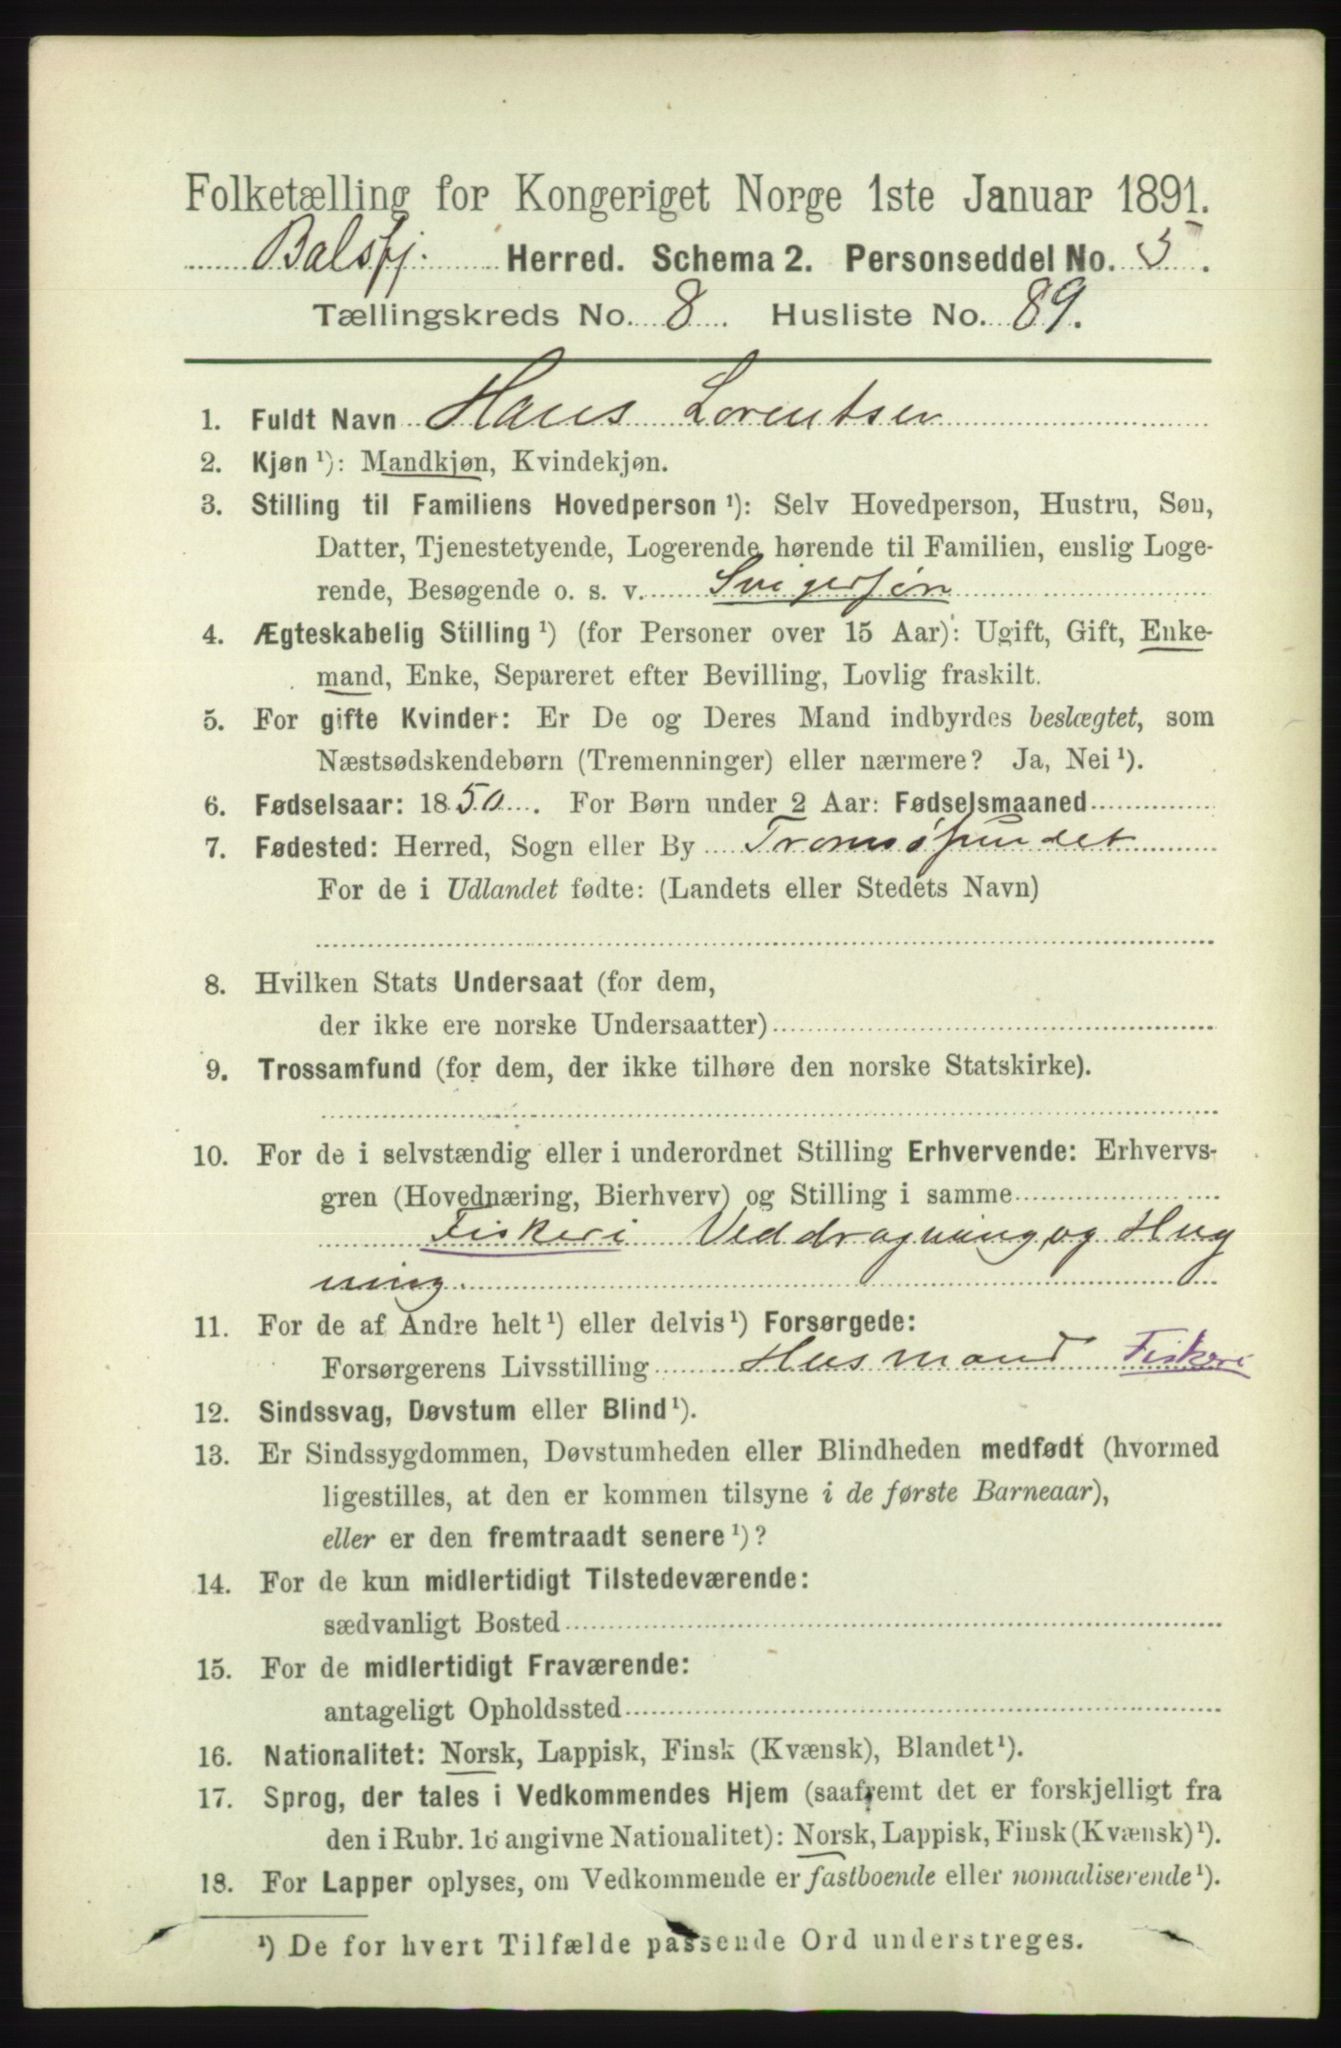 Folketælling for Kongeriget Norge 1ste Januar 1891.
Balsfj. Herred. Schema 2. Personseddel No. 5.
Tællingskreds No. 8. Husliste No. 89.
1. Fuldt Navn Hans Lorentsen
2. Kjøn ¹): Mandkjøn, Kvindekjøn.
3. Stilling til Familiens Hovedperson ¹): Selv Hovedperson, Hustru, Søn,
Datter, Tjenestetyende, Logerende hørende til Familien, enslig Loge-
rende, Besøgende o. s. v. Svigersøn
4. Ægteskabelig Stilling ¹) (for Personer over 15 Aar): Ugift, Gift, Enke-
mand, Enke, Separeret efter Bevilling, Lovlig fraskilt.
5. For gifte Kvinder: Er De og Deres Mand indbyrdes beslægtet, som
Næstsødskendebørn (Tremenninger) eller nærmere? Ja, Nei ¹).
6. Fødselsaar: 1850. For Børn under 2 Aar: Fødselsmaaned
7. Fødested: Herred, Sogn eller By Tromsøsundet
For de i Udlandet fødte: (Landets eller Stedets Navn)
8. Hvilken Stats Undersaat (for dem,
der ikke ere norske Undersaatter)
9. Trossamfund (for dem, der ikke tilhøre den norske Statskirke).
10. For de i selvstændig eller i underordnet Stilling Erhvervende: Erhvervs-
gren (Hovednæring, Bierhverv) og Stilling i samme
Fiskeri Veddragning og Hug
ning.
11. For de af Andre helt ¹) eller delvis ¹) Forsørgede:
Forsørgerens Livsstilling Husmand Fiskeri
12. Sindssvag, Døvstum eller Blind ¹).
13. Er Sindssygdommen, Døvstumheden eller Blindheden medfødt (hvormed
ligestilles, at den er kommen tilsyne i de første Barneaar),
eller er den fremtraadt senere ¹)?
14. For de kun midlertidigt Tilstedeværende:
sædvanligt Bosted
15. For de midlertidigt Fraværende:
antageligt Opholdssted
16. Nationalitet: Norsk, Lappisk, Finsk (Kvænsk), Blandet ¹).
17. Sprog, der tales i Vedkommendes Hjem (saafremt det er forskjelligt fra
den i Rubr. 16 angivne Nationalitet): Norsk, Lappisk, Finsk (Kvænsk) ¹).
18. For Lapper oplyses, om Vedkommende er fastboende eller nomadiserende ¹).
¹) De for hvert Tilfælde passende Ord understreges.